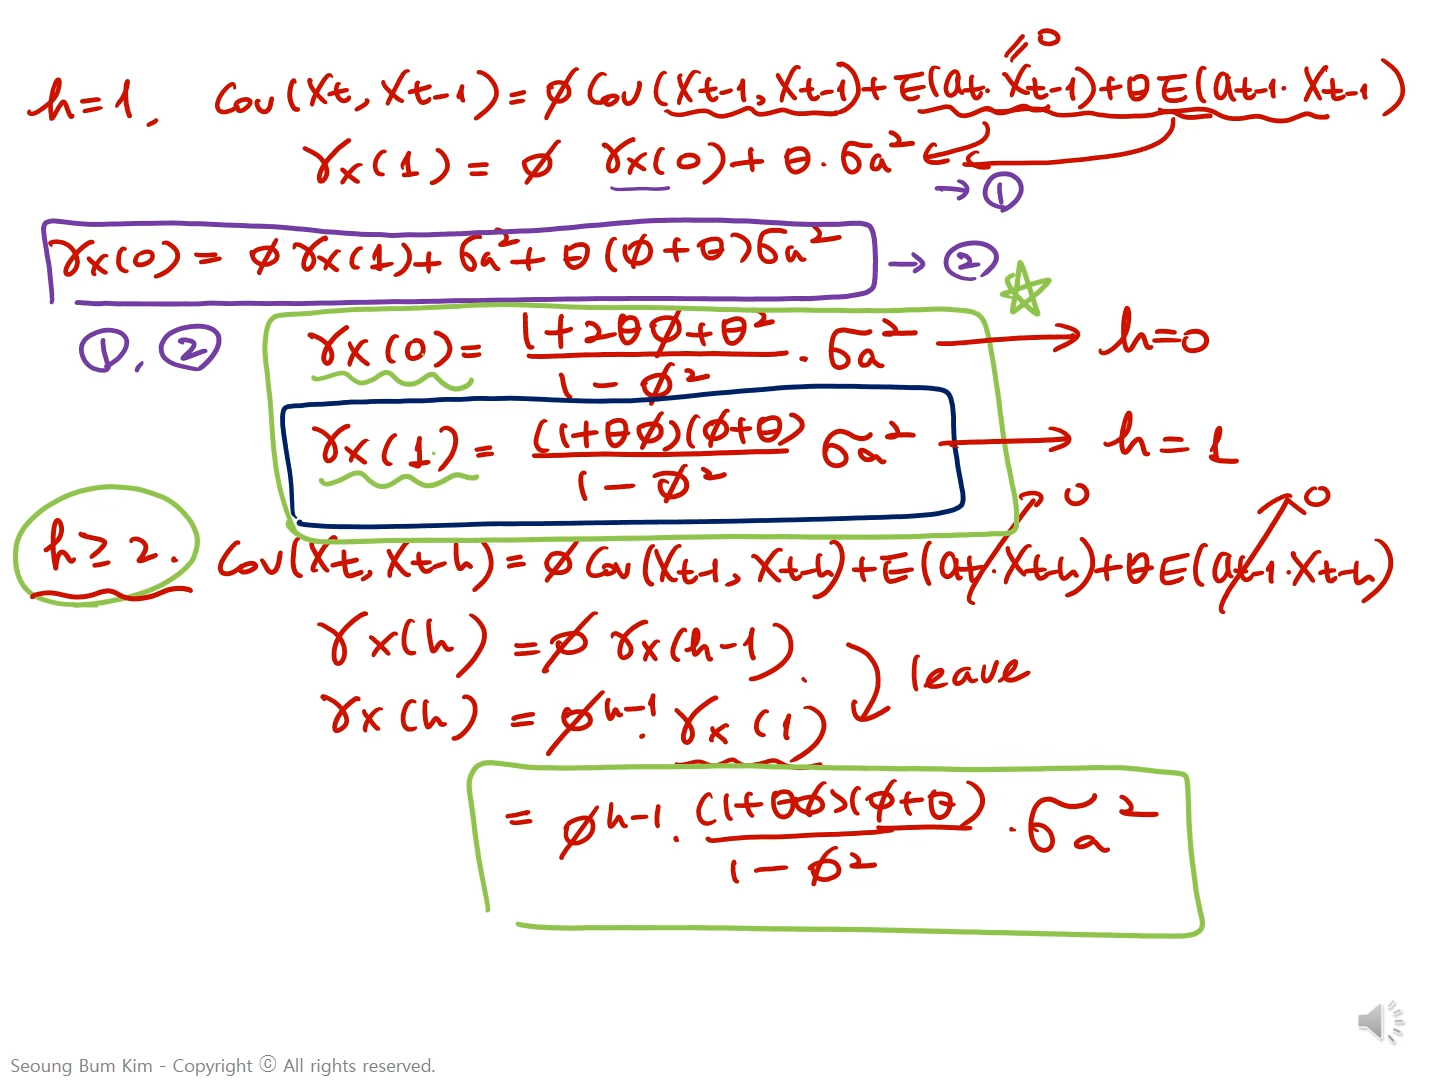 = 0
h=1, Cov(Xt, Xt-1) = ϕ Cov(Xt-1, Xt-1) + E(at·Xt-1) + θ E(at-1·Xt-1)
γx(1) = ϕ γx(0) + θ·σa²
→ ①
γx(0) = ϕ γx(1) + σa² + θ(ϕ+θ)σa² → ②
①, ② γx(0) = (1+2θϕ+θ²)/(1-ϕ²) · σa² → h=0
γx(1) = (1+θϕ)(ϕ+θ)/(1-ϕ²) σa² → h=1
0 0
h≥2. Cov(Xt, Xt-h) = ϕ Cov(Xt-1, Xt-h) + E(at·Xt-h) + θ E(at-1·Xt-h)
γx(h) = ϕ γx(h-1).
leave
γx(h) = ϕ^h-1 · γx(1)
= ϕ^h-1 · (1+θϕ)(ϕ+θ)/(1-ϕ²) · σa²
Seoung Bum Kim - Copyright ⓒ All rights reserved.